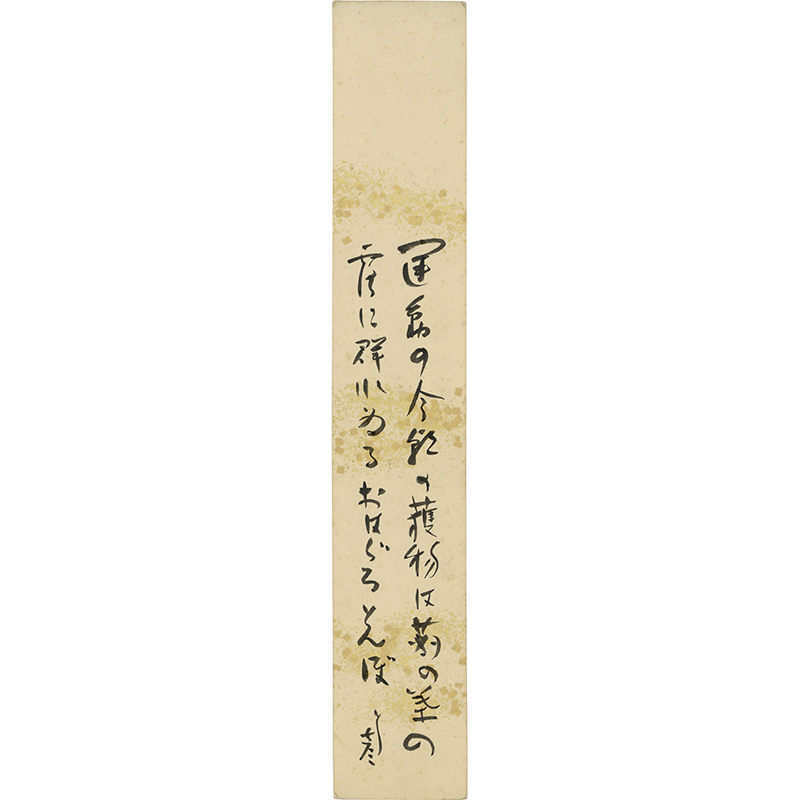 運動の今朝の獲物は菊の葉の
露に群れゐるおはぐろとんぼ